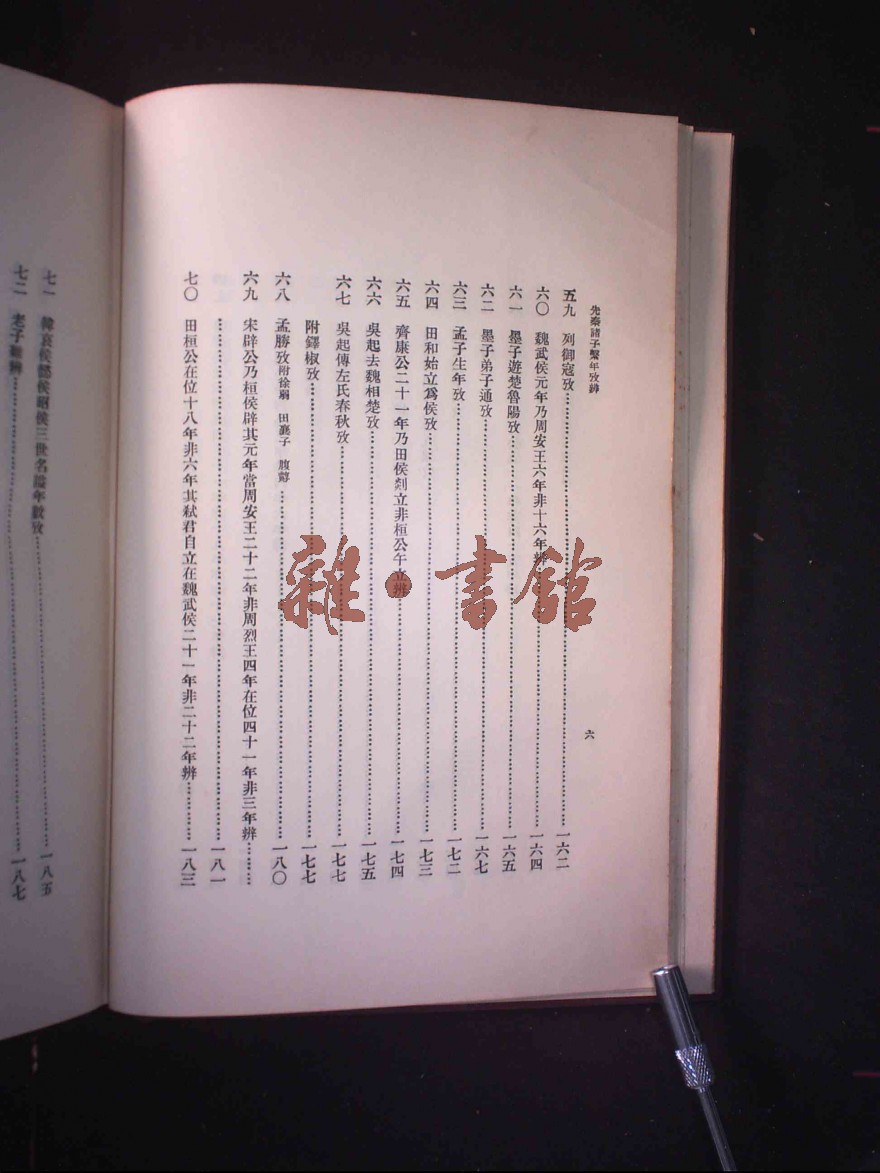 先秦諸子繫年攷辨
六
五九 列御寇攷……一六二
六〇 魏武侯元年乃周安王六年非十六年辨……一六四
六一 墨子遊楚魯陽攷……一六五
六二 墨子弟子通攷……一六七
六三 孟子生年攷……一七二
六四 田和始立爲侯攷……一七三
六五 齊康公二十一年乃田侯剡立非桓公午立辨……一七四
六六 吳起去魏相楚攷……一七五
六七 吳起傳左氏春秋攷……一七七
附鐸椒攷……一七七
六八 孟勝攷附徐弱 田襄子 腹䵍……一八〇
六九 宋辟公乃桓侯辟其元年當周安王二十二年非周烈王四年在位四十一年非三年辨……
……一八一
七〇 田桓公在位十八年非六年其弒君自立在魏武侯二十一年非二十二年辨……一八三
七一 韓哀侯懿侯昭侯三世名謚年數攷……一八五
七二 老子雜辨……一八七
雜·書館